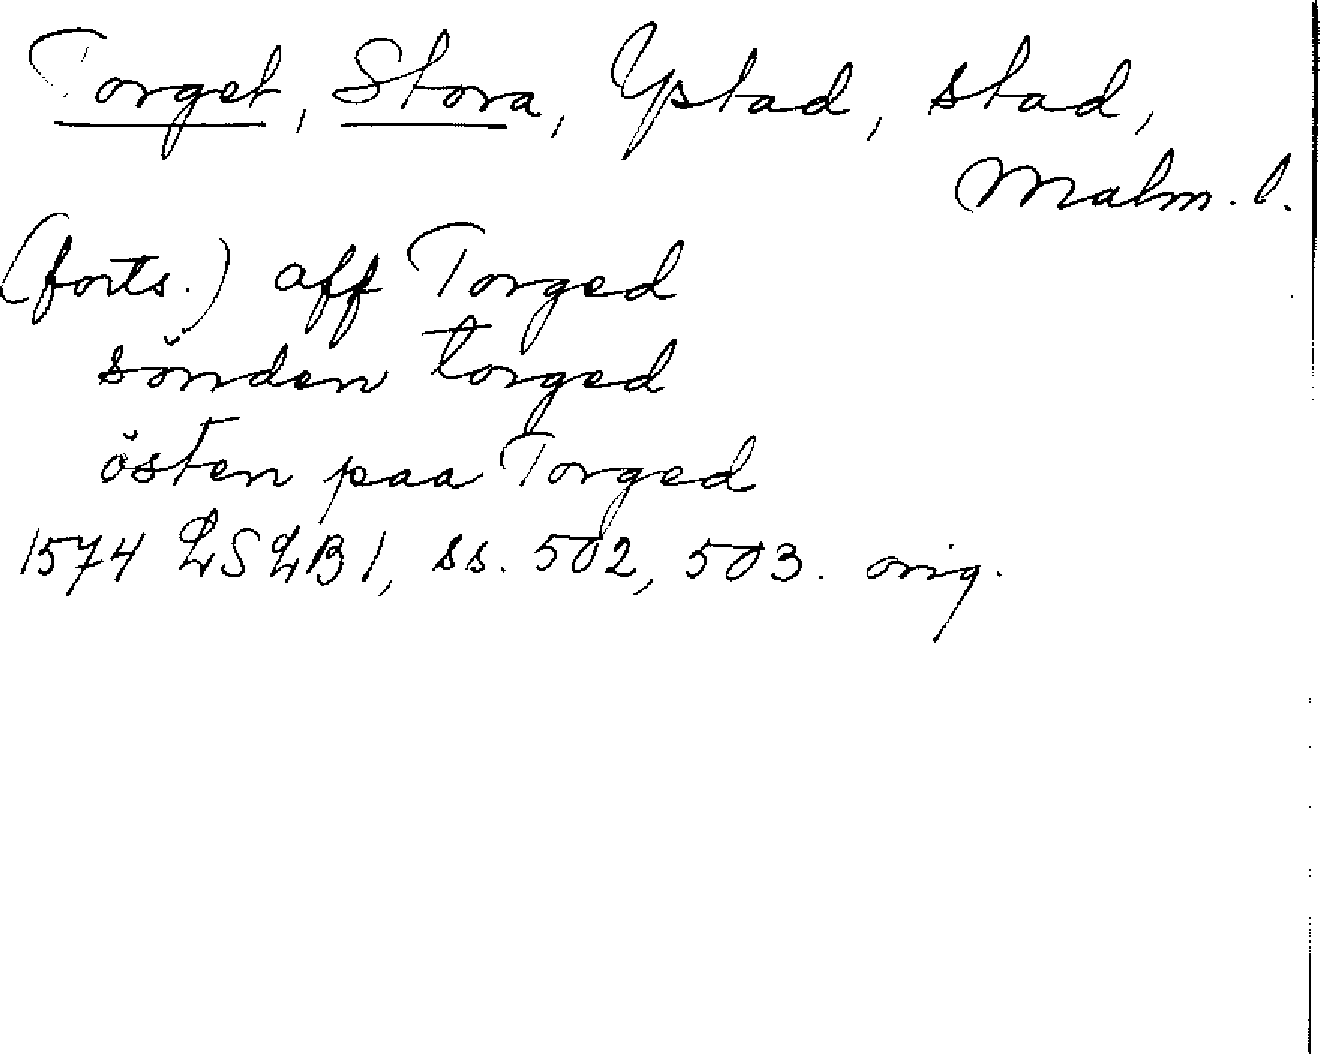 Torget, Stora, Ystad, stad,
Malm. l.
(forts.) aff Torged
sönden torged
östen paa Torged
1574 LSLB 1, ss. 502, 503. orig.